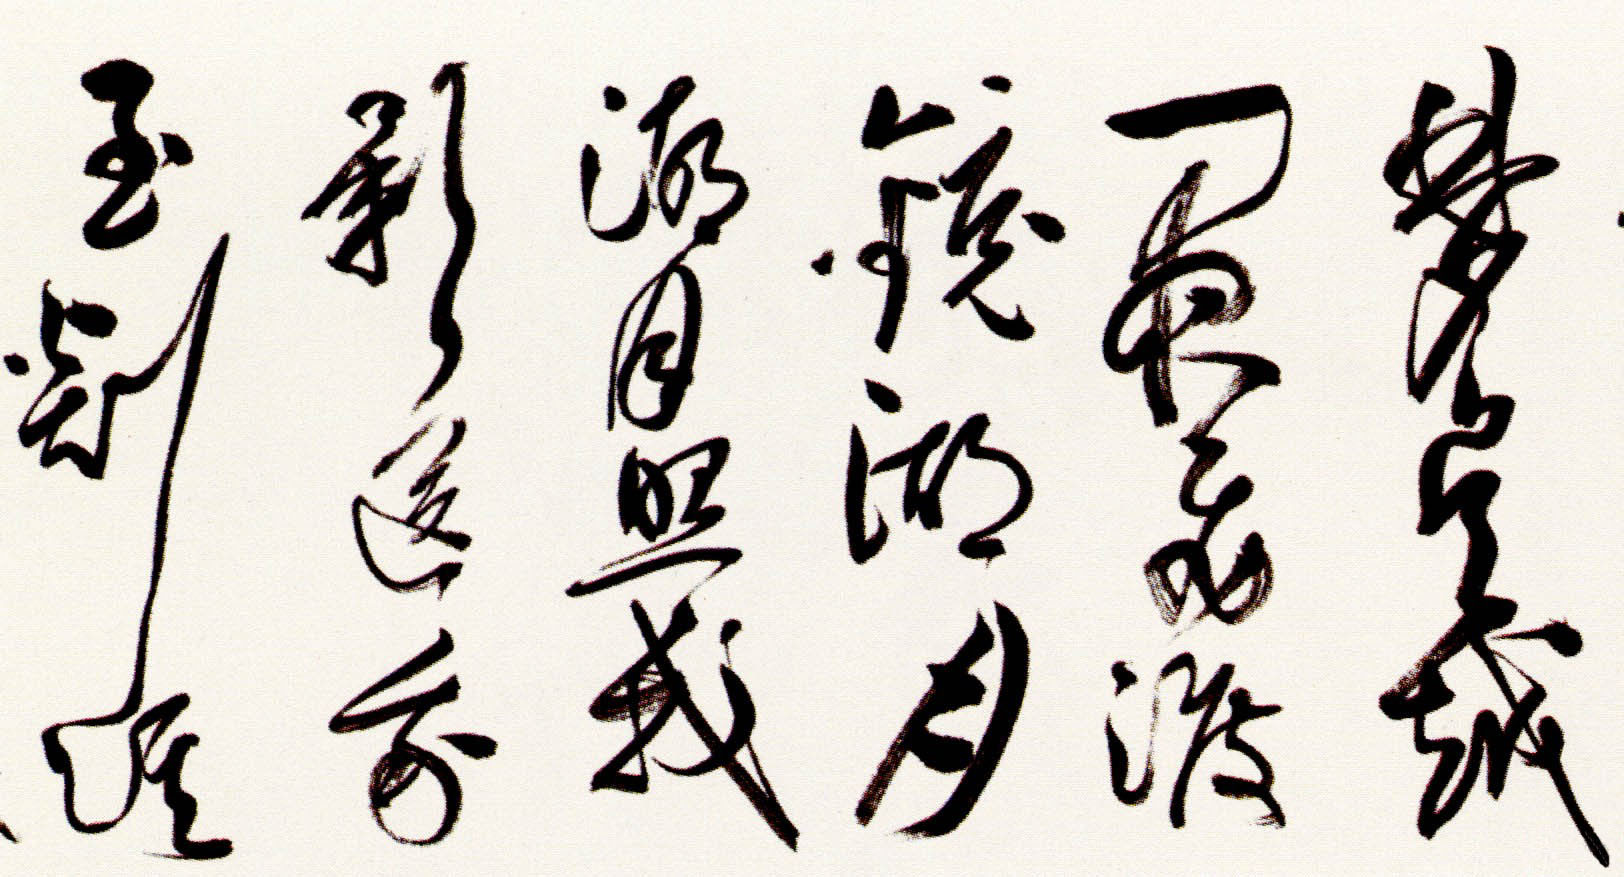 夢吳越
一夜飛渡
鏡湖月
湖月照我
影送我
至剡溪